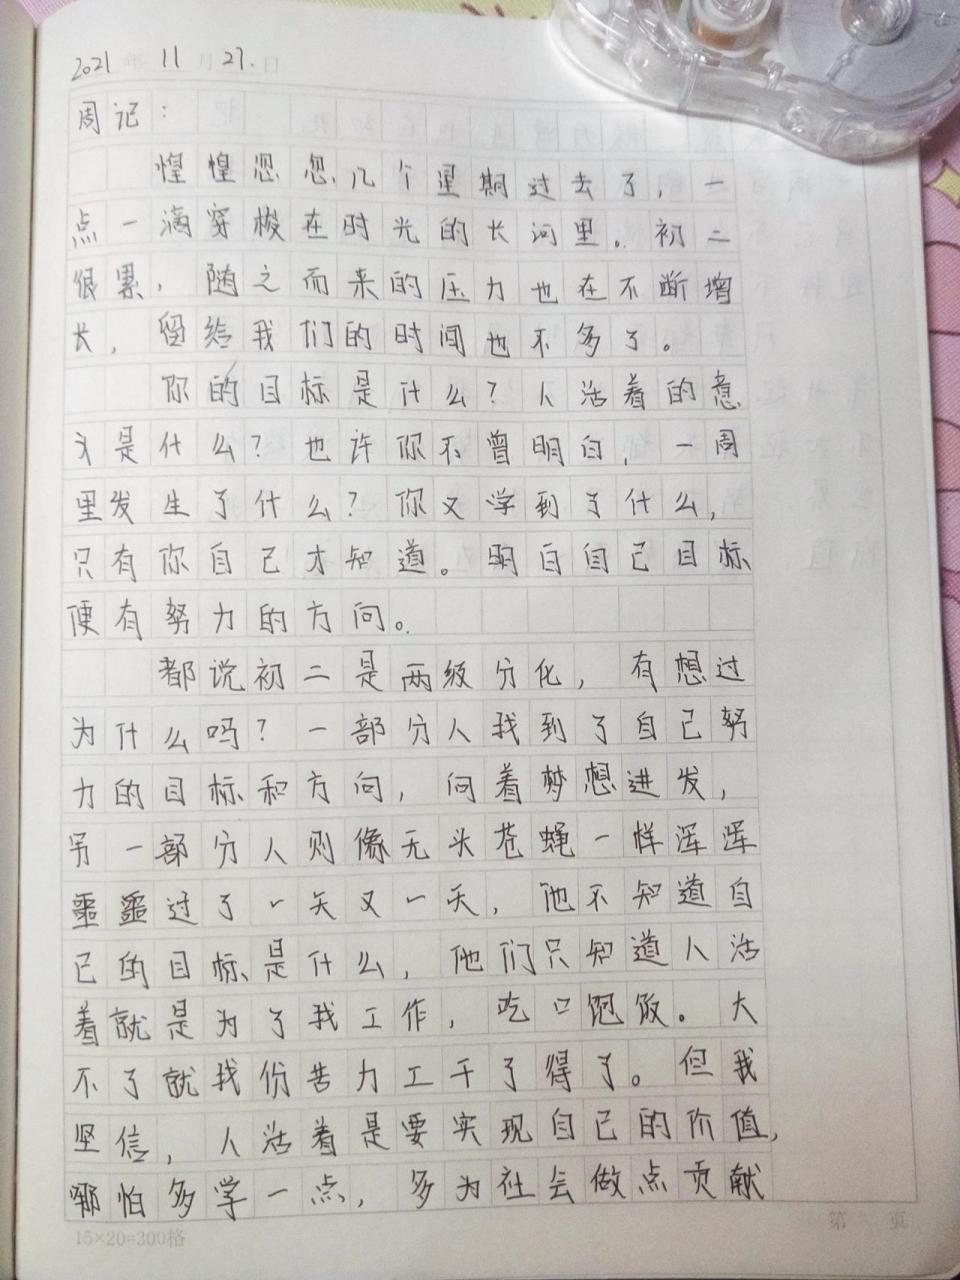 2021年 11月 27.日
周记：
惶惶忽忽，几个星期过去了，一
点一滴穿梭在时光的长河里。初二
很累，随之而来的压力也在不断增
长，留给我们的时间也不多了。
你的目标是什么？人活着的意
义是什么？也许你不曾明白，一周
里发生了什么？你又学到了什么，
只有你自己才知道。明白自己目标
便有努力的方向。
都说初二是两级分化，有想过
为什么吗？一部分人找到了自己努
力的目标和方向，向着梦想进发，
另一部分人则像无头苍蝇一样浑浑
噩噩过了一天又一天，他不知道自
己的目标是什么，他们只知道人活
着就是为了找工作，吃口饱饭。大
不了就找份苦力工干了得了。但我
坚信，人活着是要实现自己的价值，
哪怕多学一点，多为社会做点贡献
15×20=300格
第 页